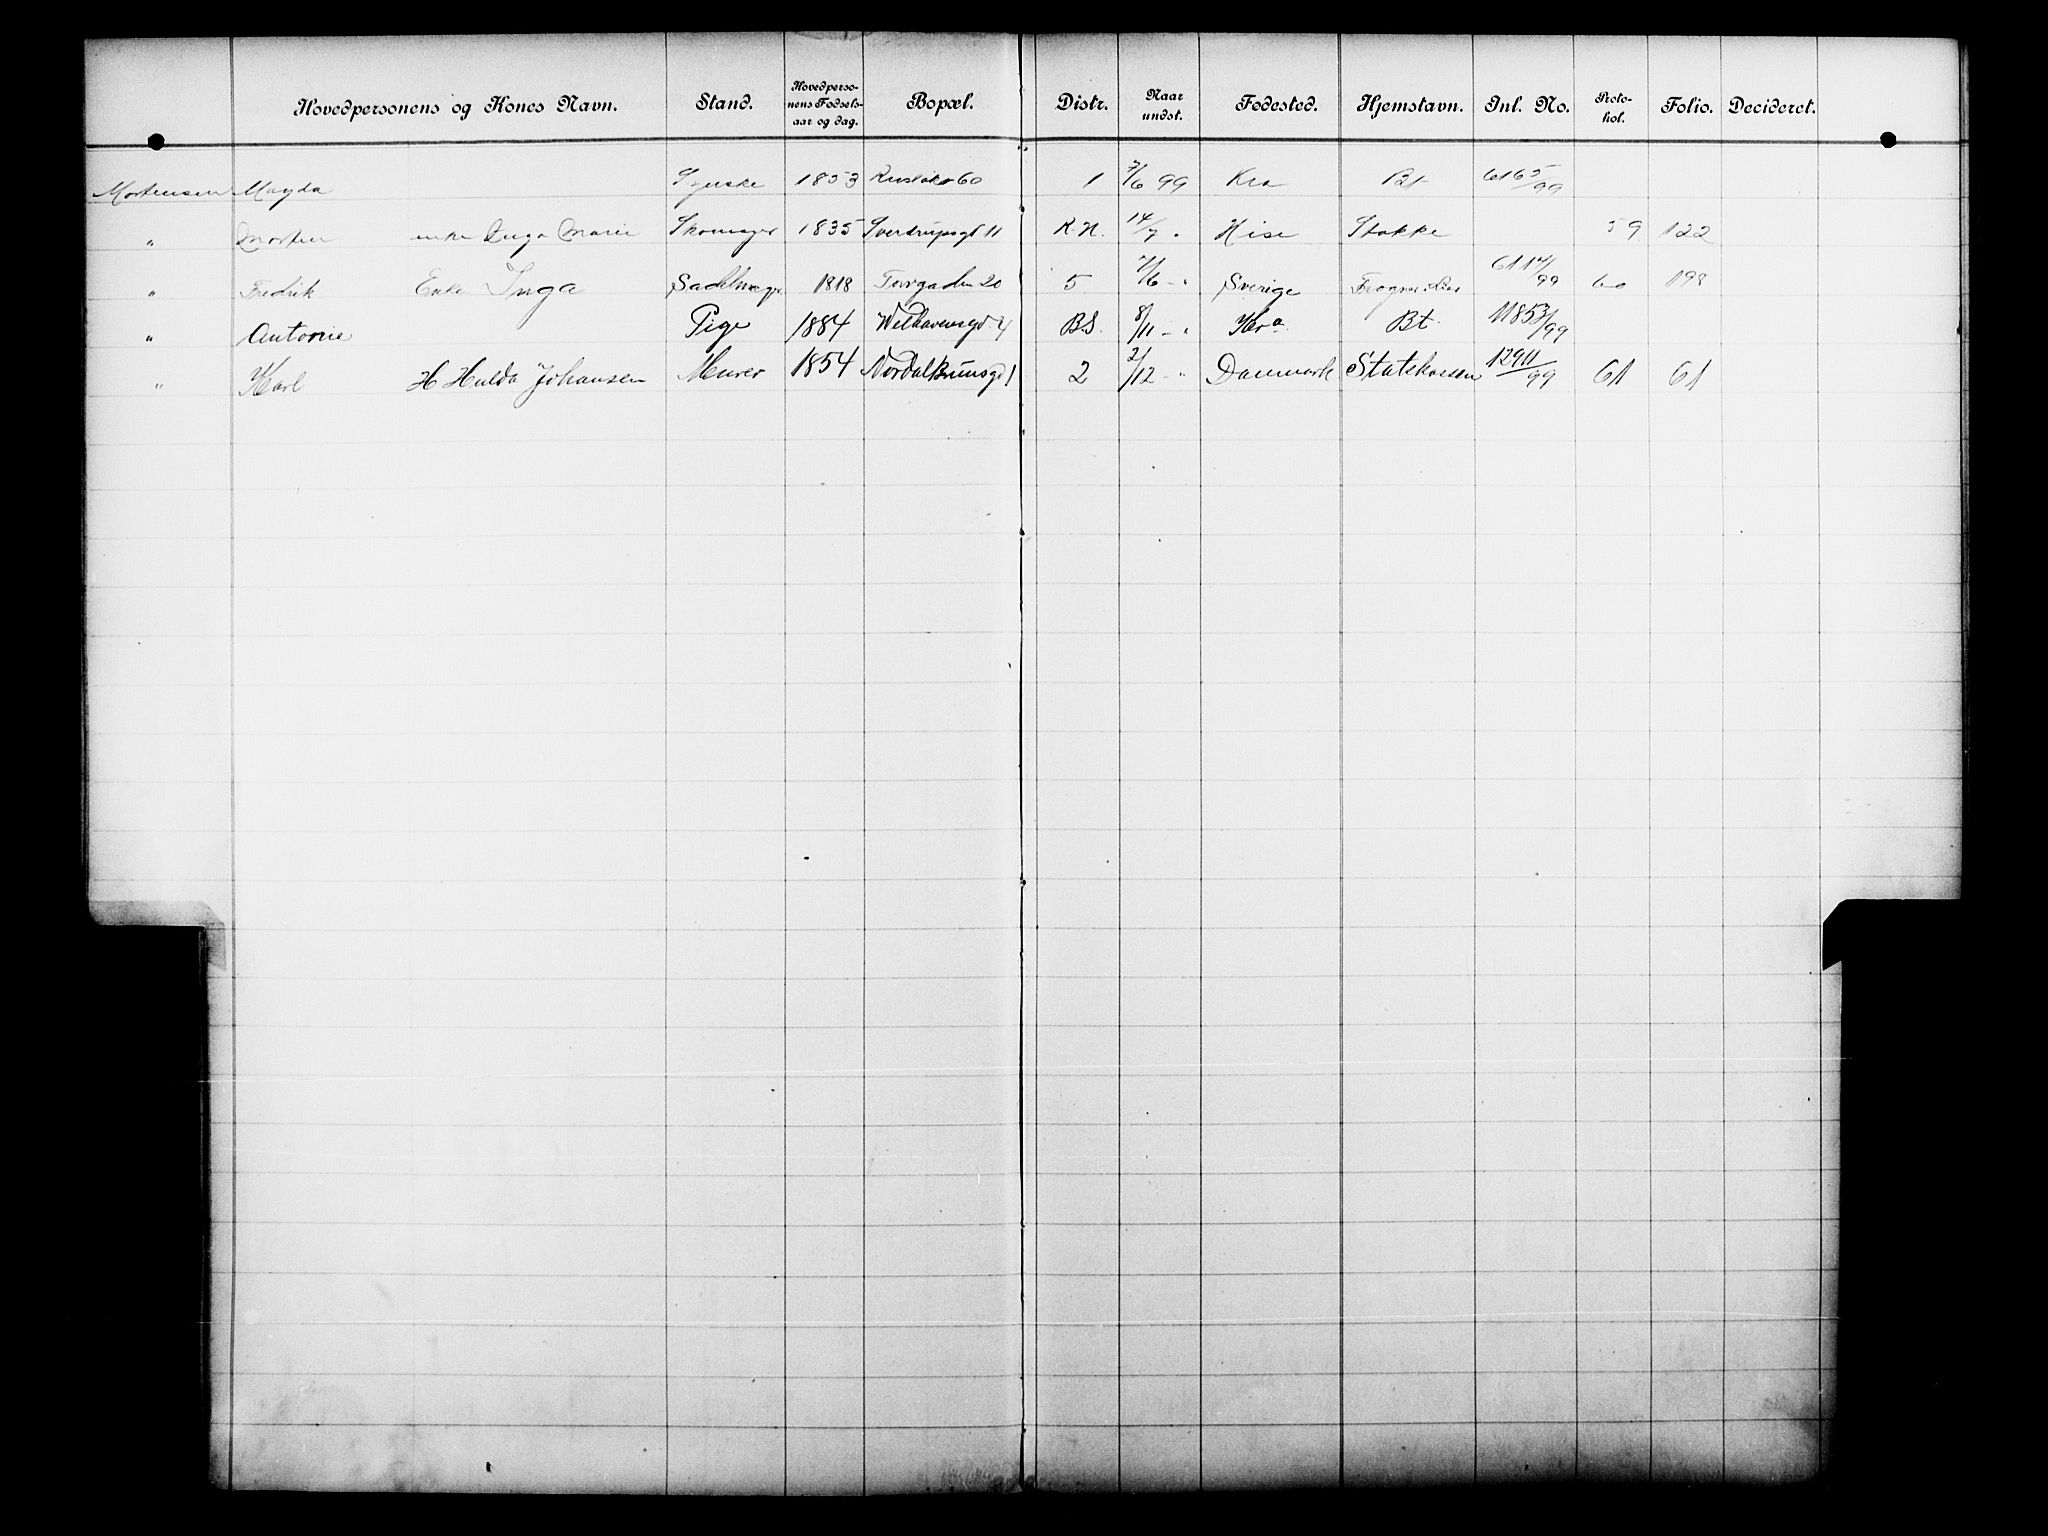 Hovedpersonens og Kones Navn. Stand. Hovedpersonens Fødselsaar og dag. Bopæl. Distr. Naar undst. Fødested. Hjemstavn. Inl. No. Protokol. Folio. Decideret.
Mortensen Magda Syerske 1853 60 1 7/6 99 Kra Bt 6165/99
" Morten enke Inga Marie Skomager 1835 Sverdrupsgt 11 K.H. 14/7 " Stokke 59 122
" Fredrik Enke Inga Sadelmager 1818 Torvgaden 20 5 7/6 - " Sverige 6114/99 60 198
" Antonie Pige 1884 Welhavensgd 4 B.S. 8/11 - " Kra Bt. 11853/99
" Karl H Hulda Johansen Murer 1854 Nordal Brunsgd 1 2 2/12 - " Danmark Statskassen 12911/99 61 61